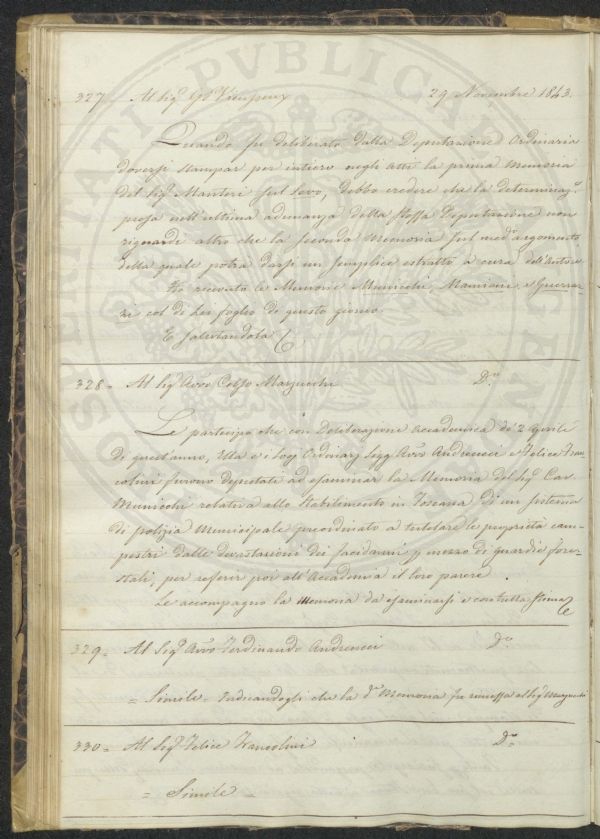 327. Al Sig.r G. P. Vieusseux 29 Novembre 1843.
Quando fu deliberato dalla Deputazione Ordinaria
doversi stampar per intiero negli Atti la prima Memoria
del Sig.r Manteri sul Lovo, debbo credere che la determinaz.e
presa nell'ultima adunanza della stessa Deputazione non
riguardi altro che la seconda Memoria sul med.o argomento
della quale potrà darsi un semplice estratto a cura dell'Autore
Ho ricevuto le Memorie Municchi, Mamiani, e Guerraz-
zi col di Lei foglio di questo giorno.
E salutandola
328 = Al Sig.r Avv.o Celso Marzucchi D.o
Le partecipo che con Deliberazione Accademica de' 2 Aprile
di quest'anno, Ella e i Socj Ordinarj Sigg. Avv.o Andreucci e Felice Fran-
colini furono deputati ad esaminar la Memoria del Sig.r Cav.
Municchi relativa allo stabilimento in Toscana di un sistema
di polizia Municipale preordinato a tutelare le proprietà cam-
pestri dalle devastazioni dei facidanni p mezzo di guardie fore-
stali, per referir poi all'Accademia il loro parere.
Le accompagno la Memoria da esaminarsi e con tutta stima
329 = Al Sig.r Avv.o Ferdinando Andreucci D.o
= Simile = Indicandogli che la d.a Memoria fu rimessa al Sig.r Marzucchi
330 = Al Sig.r Felice Francolini D.o
= Simile =
PUBLICAE